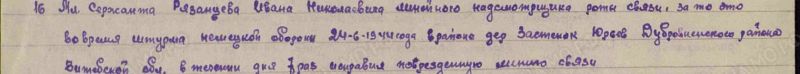 16 Мл Сержанта Рязанцева Ивана Николаевича линейного надсмотрщика роты связи, за то что
во время штурма немецкой обороны 24-6-1944 года в районе дер Застенок Юрьев Дубровненского района
Витебской обл. в течении дня 7 раз исправил поврежденную линию связи